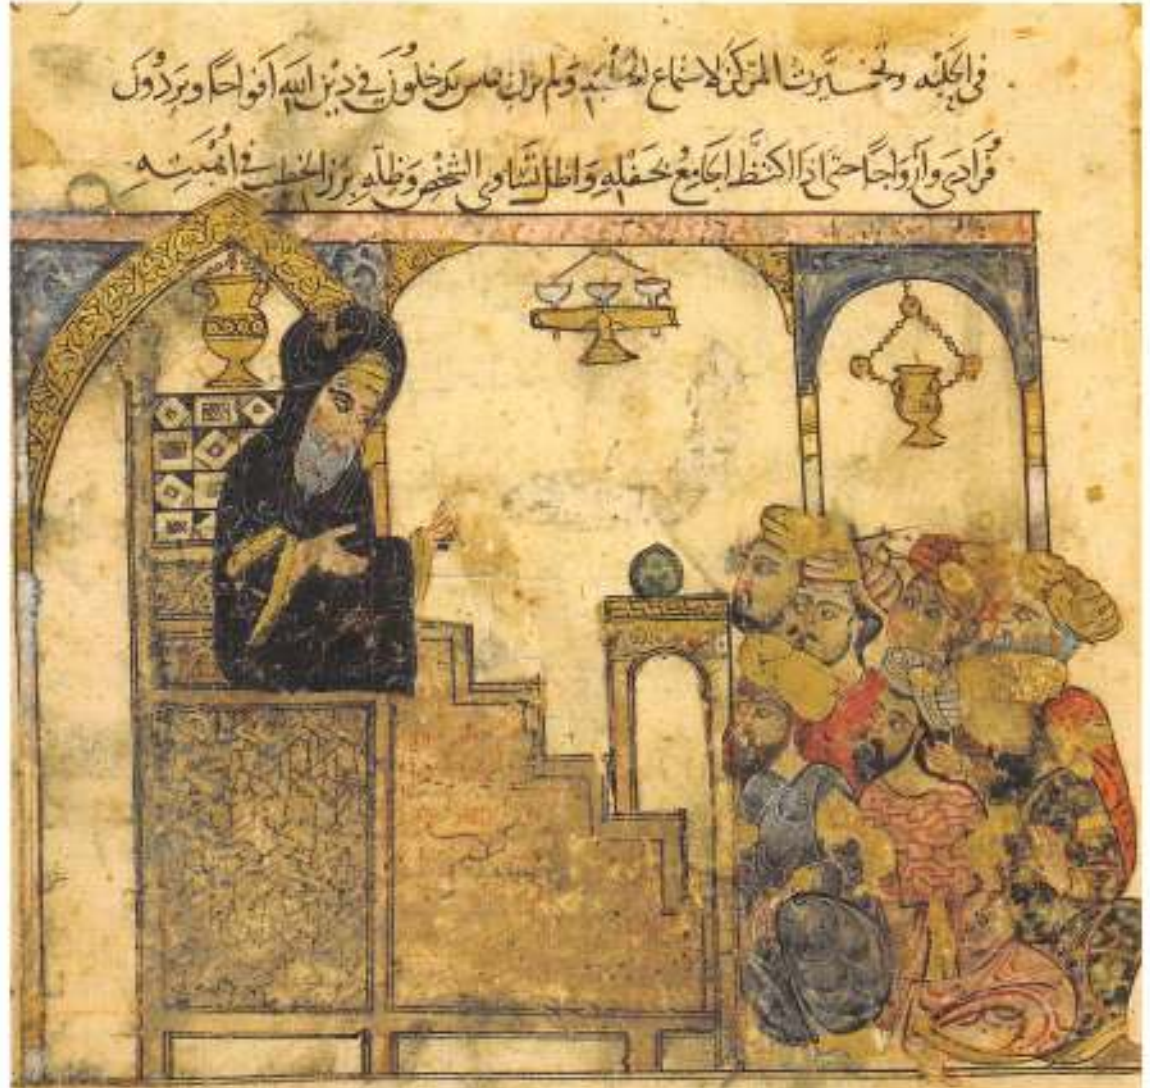 في الحلبه وتخيَّرت المركز لاستماع الخُطبه ولم يزل الناس يدخلون في دين الله أفواجًا ويردون
فُرادى وأزواجًا حتى اذا اكتظَّ الجامعُ بحفله واظل تساوى الشخص وظله برز الخطيب في أُهبته